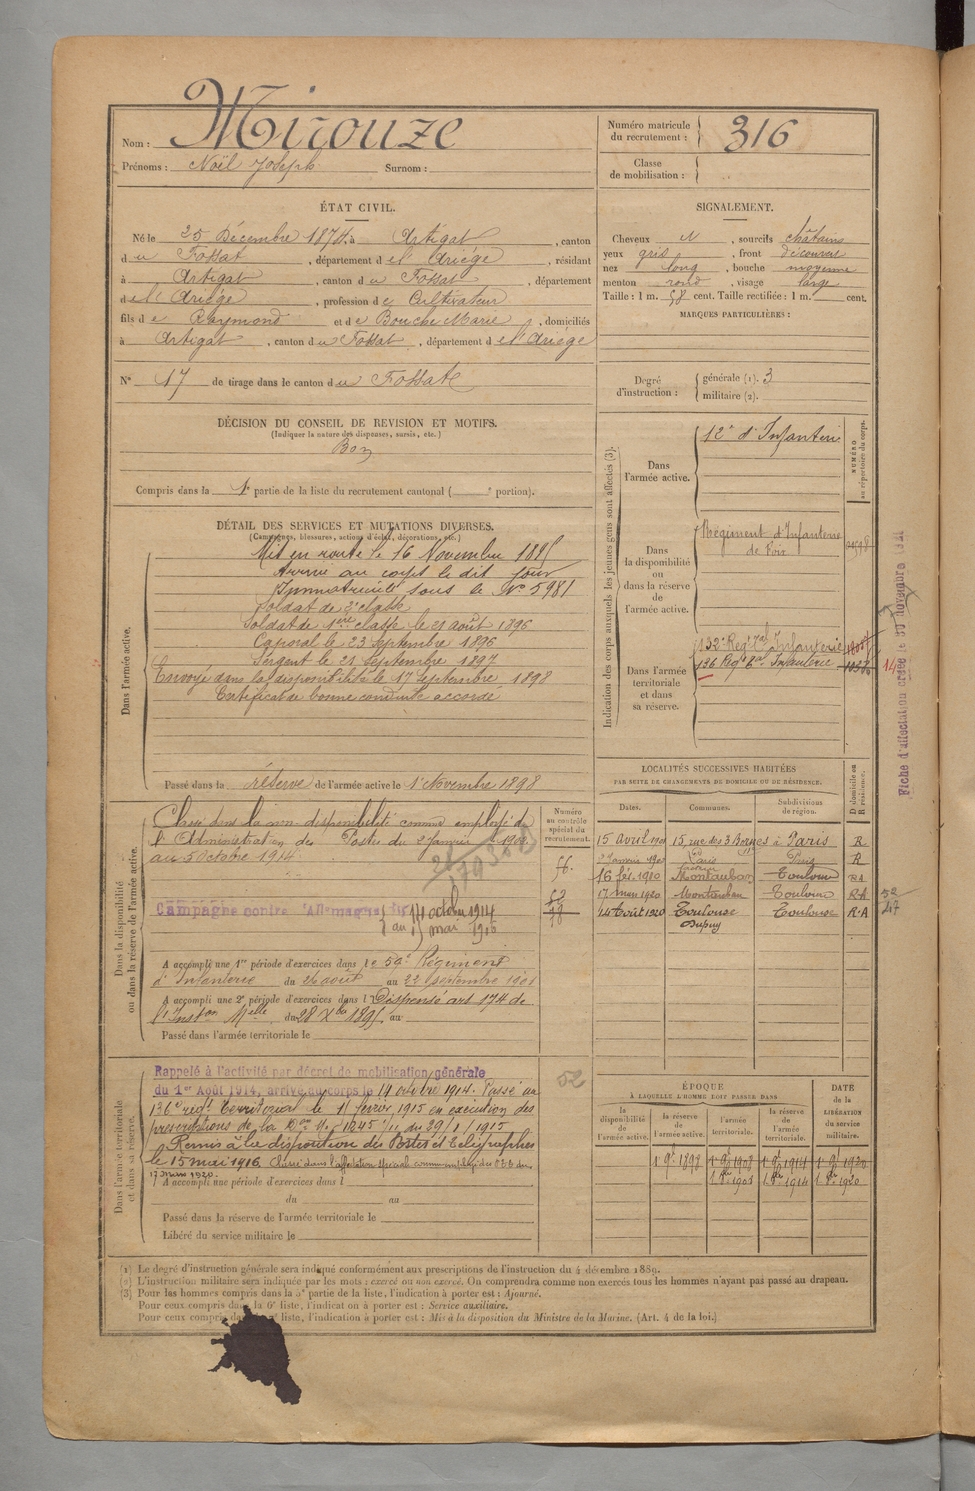 Nom : Mirouze
Prénoms : Noël Joseph Surnom :
Numéro matricule du recrutement : 316
Classe de mobilisation :
ÉTAT CIVIL.
Né le 25 Décembre 1874, à Artigat, canton
du Fossat, département de l'Ariége, résidant
à Artigat, canton du Fossat, département
de l'Ariége, profession de Cultivateur
fils de Raymond et de Bouche Marie, domiciliés
à Artigat, canton du Fossat, département de l'Ariége
N° 17 de tirage dans le canton du Fossat
SIGNALEMENT.
Cheveux N, sourcils châtains
yeux gris, front découvert
nez long, bouche moyenne
menton rond, visage large
Taille : 1 m. 58 cent. Taille rectifiée : 1 m. cent.
MARQUES PARTICULIÈRES :
Degré d'instruction : générale (1). 3
militaire (2).
DÉCISION DU CONSEIL DE REVISION ET MOTIFS.
(Indiquer la nature des dispenses, sursis, etc.)
Bon
Compris dans la 1e partie de la liste du recrutement cantonal ( e portion).
DÉTAIL DES SERVICES ET MUTATIONS DIVERSES.
(Campagnes, blessures, actions d'éclat, décorations, etc.)
Dans l'armée active.
Mis en route le 16 Novembre 1895
Arrivé au corps le dit jour
Immatriculé sous le N° 5981
Soldat de 2e classe
Soldat de 1ère classe le 21 août 1896
Caporal le 23 Septembre 1896
Sergent le 21 Septembre 1897
Envoyé dans la disponibilité le 17 Septembre 1898
Certificat de bonne conduite accordé
Passé dans la réserve de l'armée active le 1 Novembre 1898
Indication des corps auxquels les jeunes gens sont affectés (3).
NUMÉRO au répertoire du corps.
Dans l'armée active.
12e d'Infanterie
Dans la disponibilité ou dans la réserve de l'armée active.
Régiment d'Infanterie
de Foix
Dans l'armée territoriale et dans sa réserve.
132e Regt Tal Infanterie
136 Regt Ter Infanterie
14
Fiche d'affectation créée le 30 novembre 1921
LOCALITÉS SUCCESSIVES HABITÉES
PAR SUITE DE CHANGEMENTS DE DOMICILE OU DE RÉSIDENCE.
Dates. Communes. Subdivisions de région. D domicile ou R résidence.
15 Avril 1901 15 rue des 3 Bornes à Paris R
2 Janvier 1902 Paris Paris R
16 fév. 1920 Montauban Toulouse RA
17 mai 1920 Montauban Toulouse R.A
14 Août 1920 Toulouse Toulouse R.A
Dupuy
52
47
Dans la disponibilité ou dans la réserve de l'armée active.
Numéro au contrôle spécial du recrutement.
Classé dans la non-disponibilité comme employé de
l'Administration des Postes du 2 janvier 1900
au 5 Octobre 1914
56.
Campagne contre l'Allemagne du 14 octobre 1914
au 15 mai 1916
A accompli une 1re période d'exercices dans le 59e Régiment
d'Infanterie du 26 août au 22 septembre 1901
A accompli une 2e période d'exercices dans l Dispensé art 174 de
l'Inston Melle du 28 Xbre 1895, au
Passé dans l'armée territoriale le
Dans l'armée territoriale et dans sa réserve.
Rappelé à l'activité par décret de mobilisation générale
du 1er Août 1914, arrivé au corps le 14 octobre 1914. Passé au
136e régt territorial le 11 février 1915 en exécution des
prescriptions de la Don Mlle 1845 1/11 du 29/1/1915
Remis à la disposition des Postes et Télégraphes
le 15 mai 1916. Classé dans l'affectation spéciale comme employé des P.T.T. du
17 mars 1920.
52
A accompli une période d'exercices dans l
du au
Passé dans la réserve de l'armée territoriale le
Libéré du service militaire le
ÉPOQUE
À LAQUELLE L'HOMME DOIT PASSER DANS
la disponibilité de l'armée active. la réserve de l'armée active. l'armée territoriale. la réserve de l'armée territoriale.
DATE de la LIBÉRATION du service militaire.
1 9bre 1898 1 9bre 1908 1 9bre 1914 1 9bre 1920
1 8bre 1908 1 8bre 1914 1 8bre 1920
(1) Le degré d'instruction générale sera indiqué conformément aux prescriptions de l'instruction du 4 décembre 1889.
(2) L'instruction militaire sera indiquée par les mots : exercé ou non exercé. On comprendra comme non exercés tous les hommes n'ayant pas passé au drapeau.
(3) Pour les hommes compris dans la 5e partie de la liste, l'indication à porter est : Ajourné.
Pour ceux compris dans la 6e liste, l'indication à porter est : Service auxiliaire.
Pour ceux compris dans la liste, l'indication à porter est : Mis à la disposition du Ministre de la Marine. (Art. 4 de la loi.)